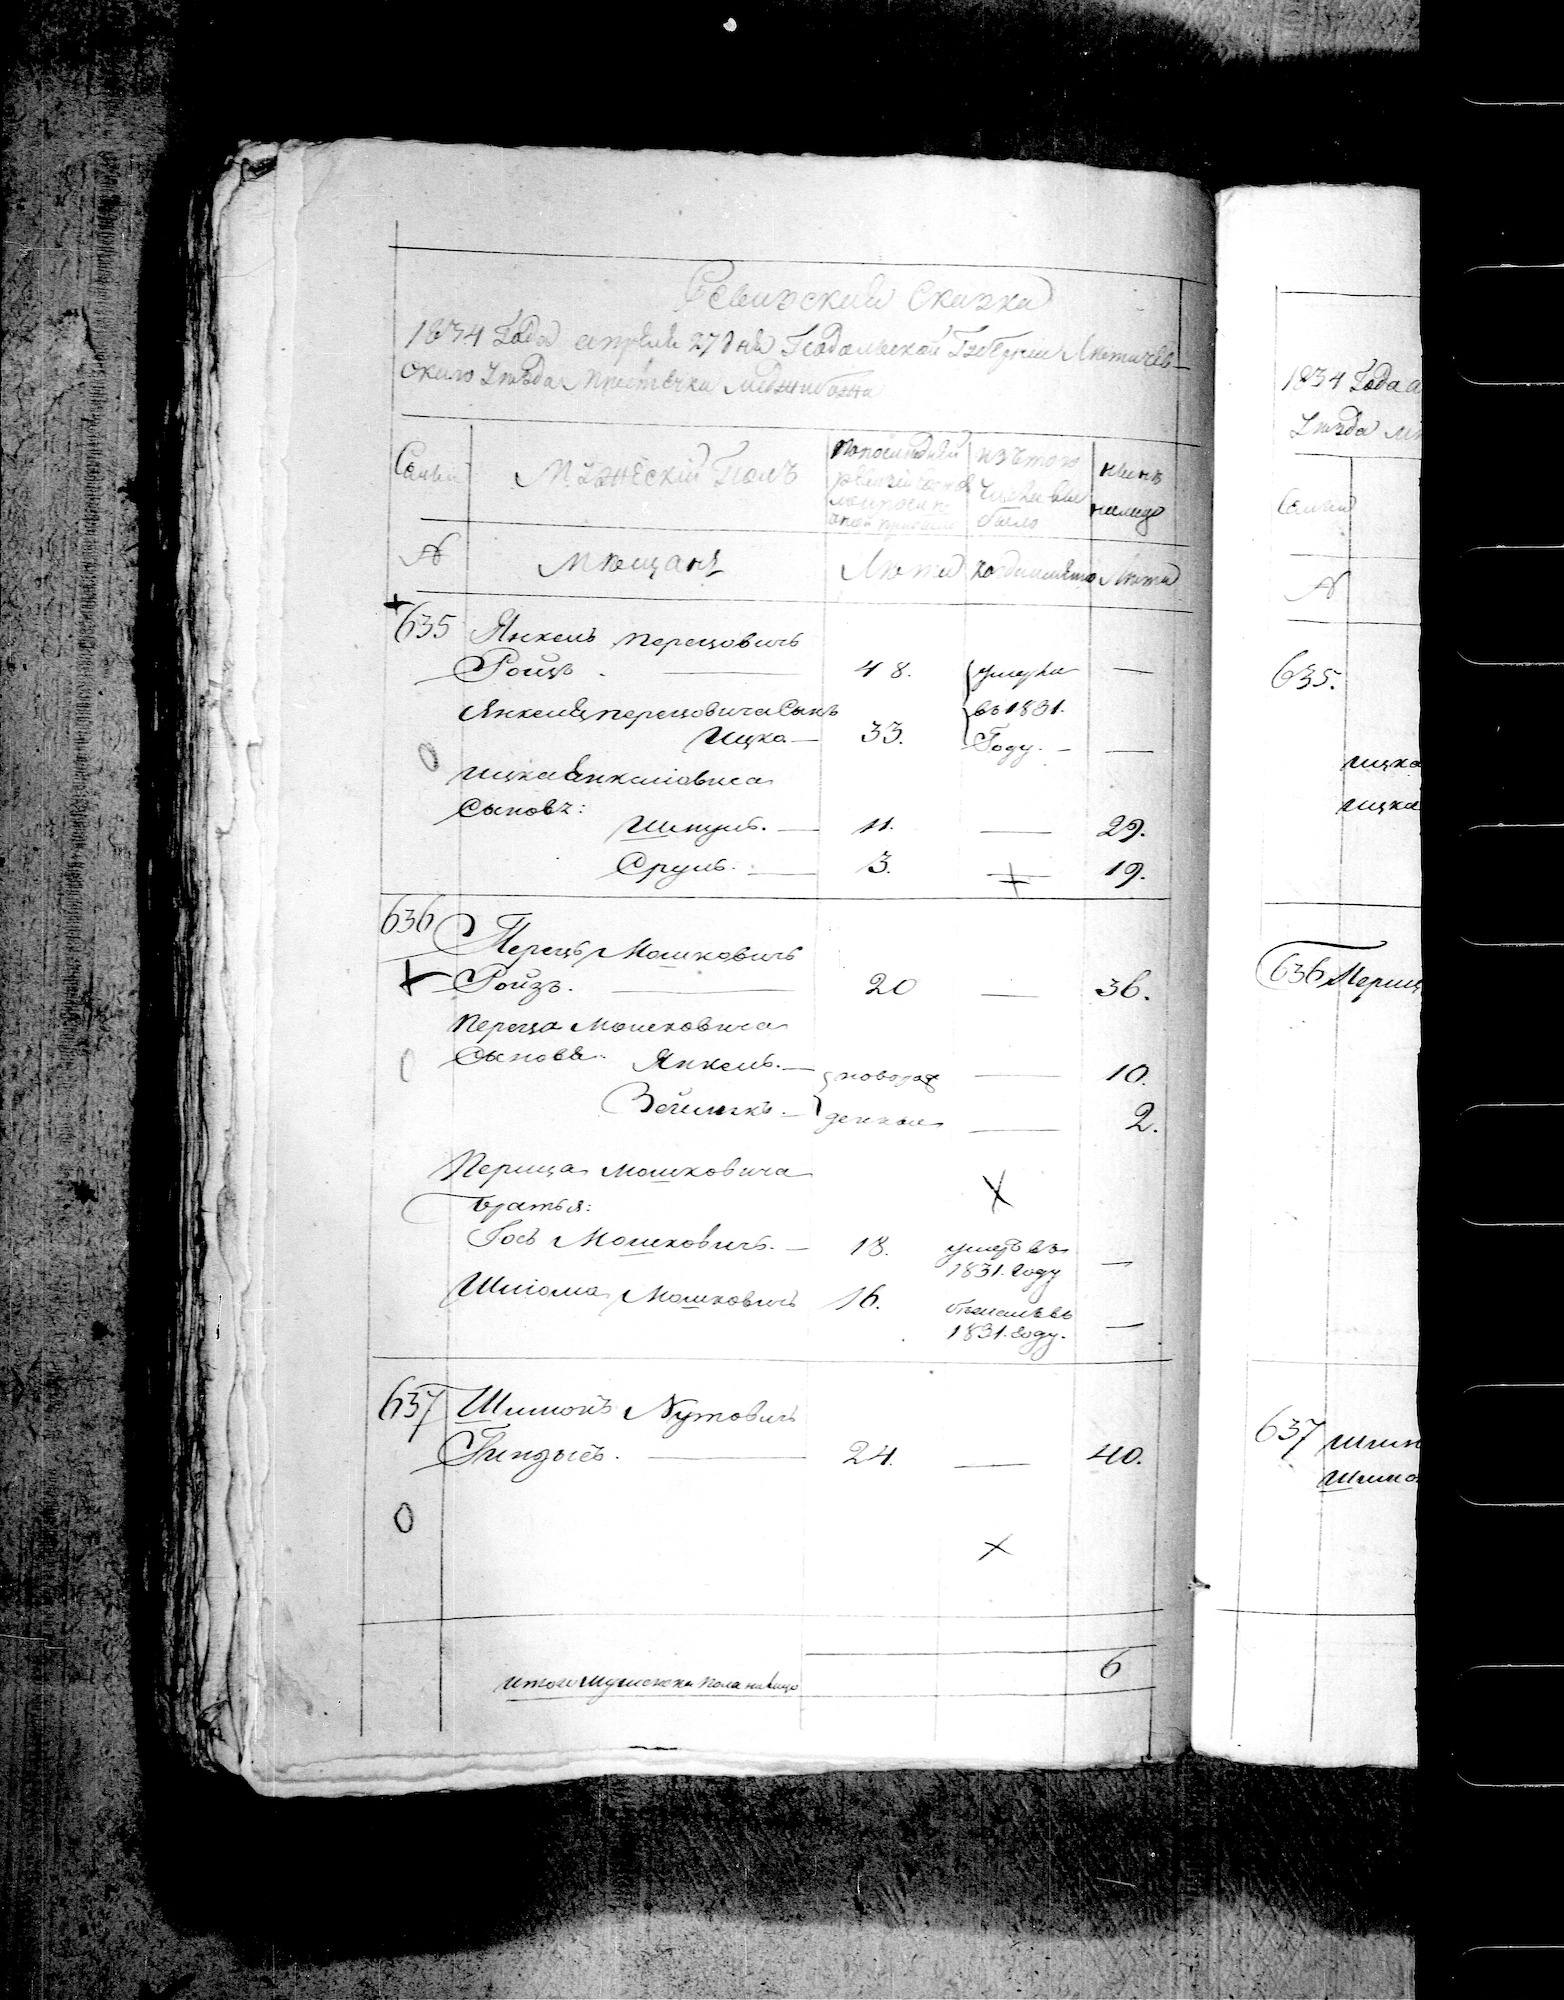 Ревизская Сказка
1834 Года апреля 27 дня Подольской Губернии Летичев-
ского Уезда Местечка Меджибожа
Семьи
Мужеский Полъ
По последней ревизии состояло и после
оной прибыло
изъ того числа выбыло
ныне на лицо
№
мещане
Лета
когда имянно
Лета
635 Янкель Перецовичъ
Ройзъ. 48. умерли —
Янкеля Перецовича Сынъ въ 1831.
Ицко — 33. Году. — —
Ицка Янкелiовича
Сыновъ:
Шмуль. — 11. — 29.
Сруль. — 3. — 19.
636 Перецъ Мошковичъ
Ройзъ. — 20 — 36.
Переца Мошковича
Сыновя. Янкель. — новорож — 10.
Зейликъ. — денные — 2.
Перица Мошковича
братья:
Іось Мошковичъ. — 18. умеръ въ —
1831. году
Шліома Мошковичъ 16. бежалъ въ —
1831. году.
637 Шимонъ Нутовичъ
24. — 40.
итого мужеска пола на лицо 6
1834 Года а
Уезда ме
Семьи
№
635.
Ицка
Ицка
636 Периц
637 Шим
Шимо